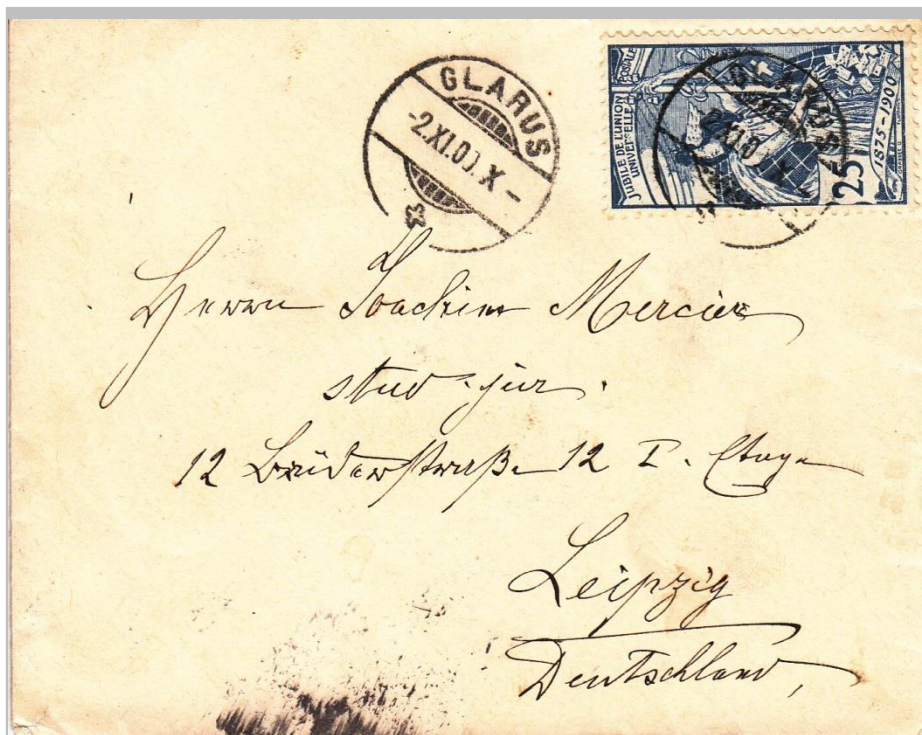 GLARUS
-2.XI.00.X-
JUBILÉ DE L'UNION POSTALE
UNIVERSELLE
25
1875-1900
GLARUS
Herrn Joachim Mercier
stud. jur.
12 Brüderstraße 12 I. Etage
Leipzig
Deutschland,